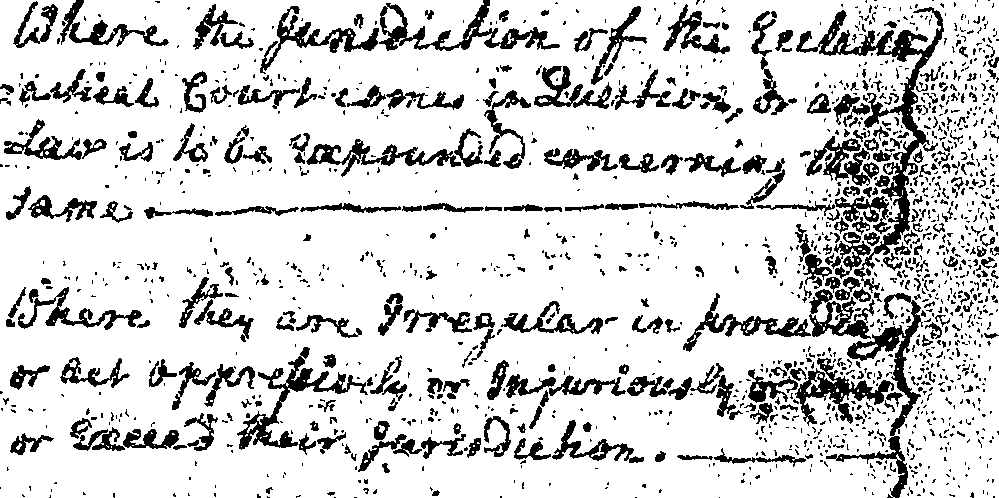 Where the Jurisdiction of the Ecclesia
=astical Court comes in Question, or any
Law is to be Expounded concerning the
same.
Where they are Irregular in proceeding
or act oppressively or Injuriously or
or Exceed their Jurisdiction.